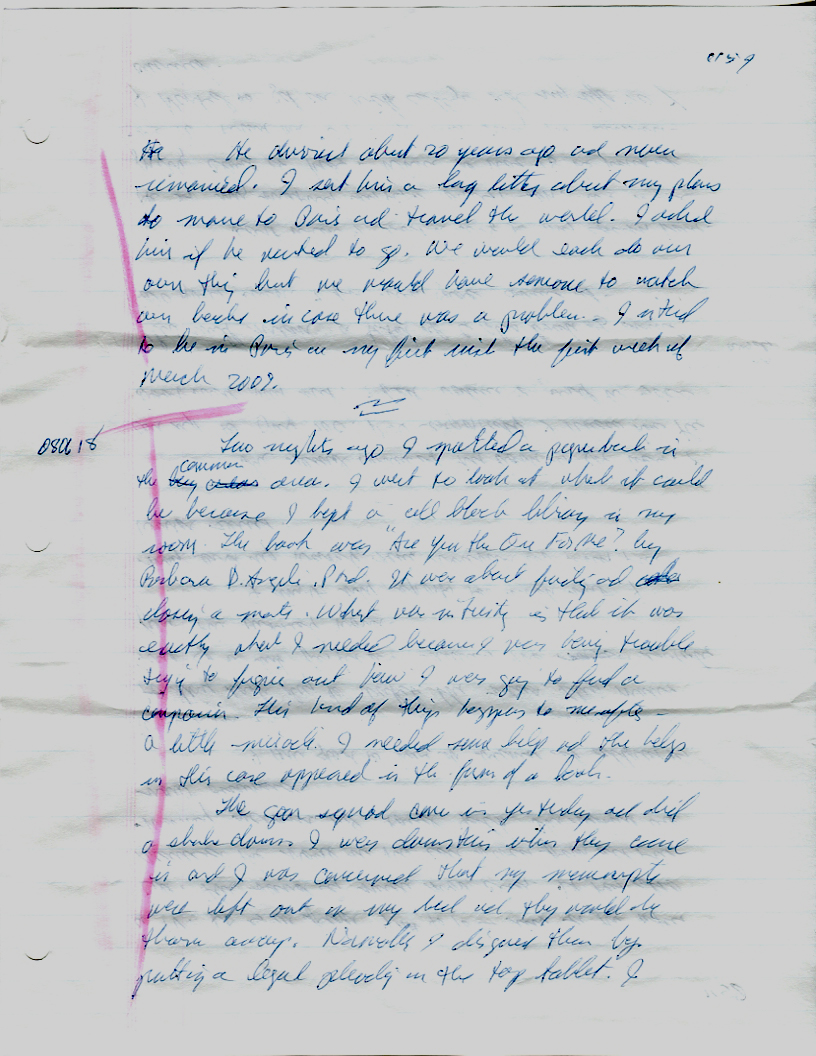 He divorced about 20 years ago and never
remarried. I sent him a long letter about my plans
to move to Paris and travel the world. I asked
him if he wanted to go. We would each do our
own thing but we would have someone to watch
our backs in case there was a problem. I
to be in Paris on my first visit the first week of
March 2009.
08 18
Two nights ago I spotted a paperback in
the common area. I went to look at what it could
be because I kept a cell block library in my
room. The book was "Are you the One For Me?" by
Barbara D. Angelis, Phd. It was about finding and
a mate. What was is that it was
exactly what I needed because I was having trouble
trying to figure out how I was going to find a
companion. This kind of thing happens to me often –
a little miracle. I needed some help and the help
in this case appeared in the form of a book.
The goon squad came in yesterday and did
a shake down. I was downstairs when they came
in and I was concerned that my manuscripts
were left out on my bed and they would be
thrown away. Normally I disguised them by
putting a legal pleading on the top tablet. I